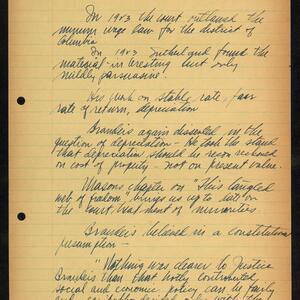 In 1923 the court outlawed the
minimum wage law for the district of
Columbia
In 1923 Sutherland found the
material - interesting but only
mildly persuasive.
His work on stable rate, fair
rate of return, depreciation
Brandeis again dissented in the
question of depreciation - He took the stand
that depreciation should be reckoned
on cost of property - not on present value.
Masons chapter on "This tangled
web of freedom" brings us up to date on
the court treatment of minorities
Brandeis believed in a constitutional
presumption -
"Nothing was clearer to Justice
Brandeis than that hotly controverted
social and economic policy can be fairly